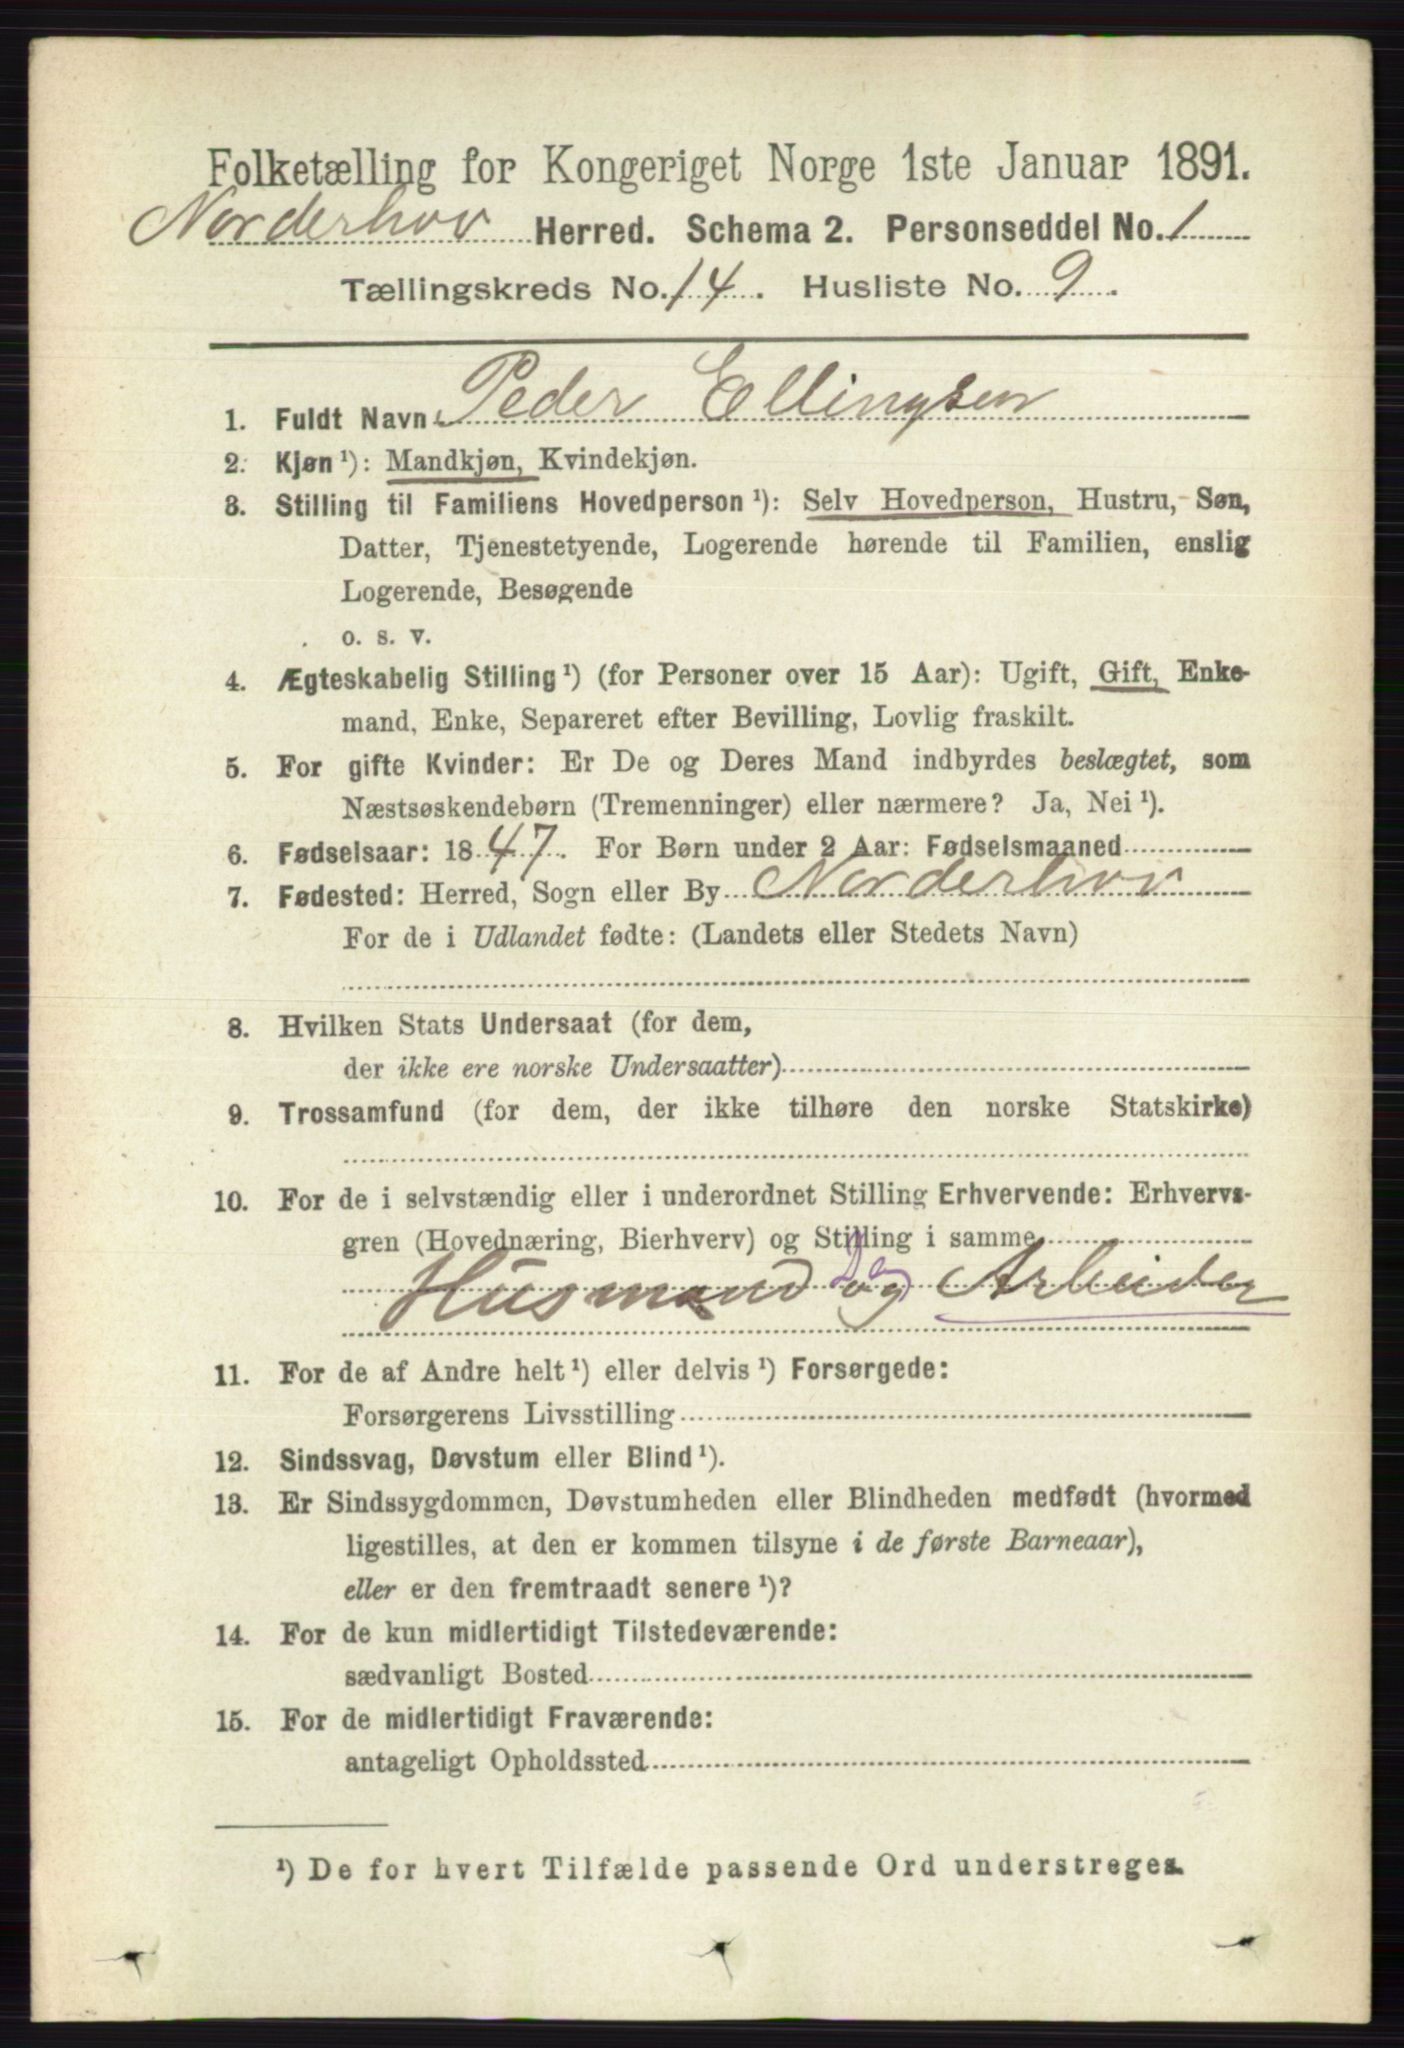 Folketælling for Kongeriget Norge 1ste Januar 1891.
Norderhov Herred. Schema 2. Personseddel No. 1
Tællingskreds No. 14. Husliste No. 9.
1. Fuldt Navn Peder Ellingsen
2. Kjøn¹): Mandkjøn, Kvindekjøn.
3. Stilling til Familiens Hovedperson¹): Selv Hovedperson, Hustru, Søn,
Datter, Tjenestetyende, Logerende hørende til Familien, enslig
Logerende, Besøgende
o. s. v.
4. Ægteskabelig Stilling¹) (for Personer over 15 Aar): Ugift, Gift, Enke-
mand, Enke, Separeret efter Bevilling, Lovlig fraskilt.
5. For gifte Kvinder: Er De og Deres Mand indbyrdes beslægtet, som
Næstsøskendebørn (Tremenninger) eller nærmere? Ja, Nei¹).
6. Fødselsaar: 1847. For Børn under 2 Aar: Fødselsmaaned
7. Fødested: Herred, Sogn eller By Norderhov
For de i Udlandet fødte: (Landets eller Stedets Navn)
8. Hvilken Stats Undersaat (for dem,
der ikke ere norske Undersaatter)
9. Trossamfund (for dem, der ikke tilhøre den norske Statskirke)
10. For de i selvstændig eller i underordnet Stilling Erhvervende: Erhvervs-
gren (Hovednæring, Bierhverv) og Stilling i samme
Husmand og Arbeider
11. For de af Andre helt¹) eller delvis¹) Forsørgede:
Forsørgerens Livsstilling
12. Sindssvag, Døvstum eller Blind¹).
13. Er Sindssygdommen, Døvstumheden eller Blindheden medfødt (hvormed
ligestilles, at den er kommen tilsyne i de første Barneaar),
eller er den fremtraadt senere¹)?
14. For de kun midlertidigt Tilstedeværende:
sædvanligt Bosted
15. For de midlertidigt Fraværende:
antageligt Opholdssted
¹) De for hvert Tilfælde passende Ord understreges.